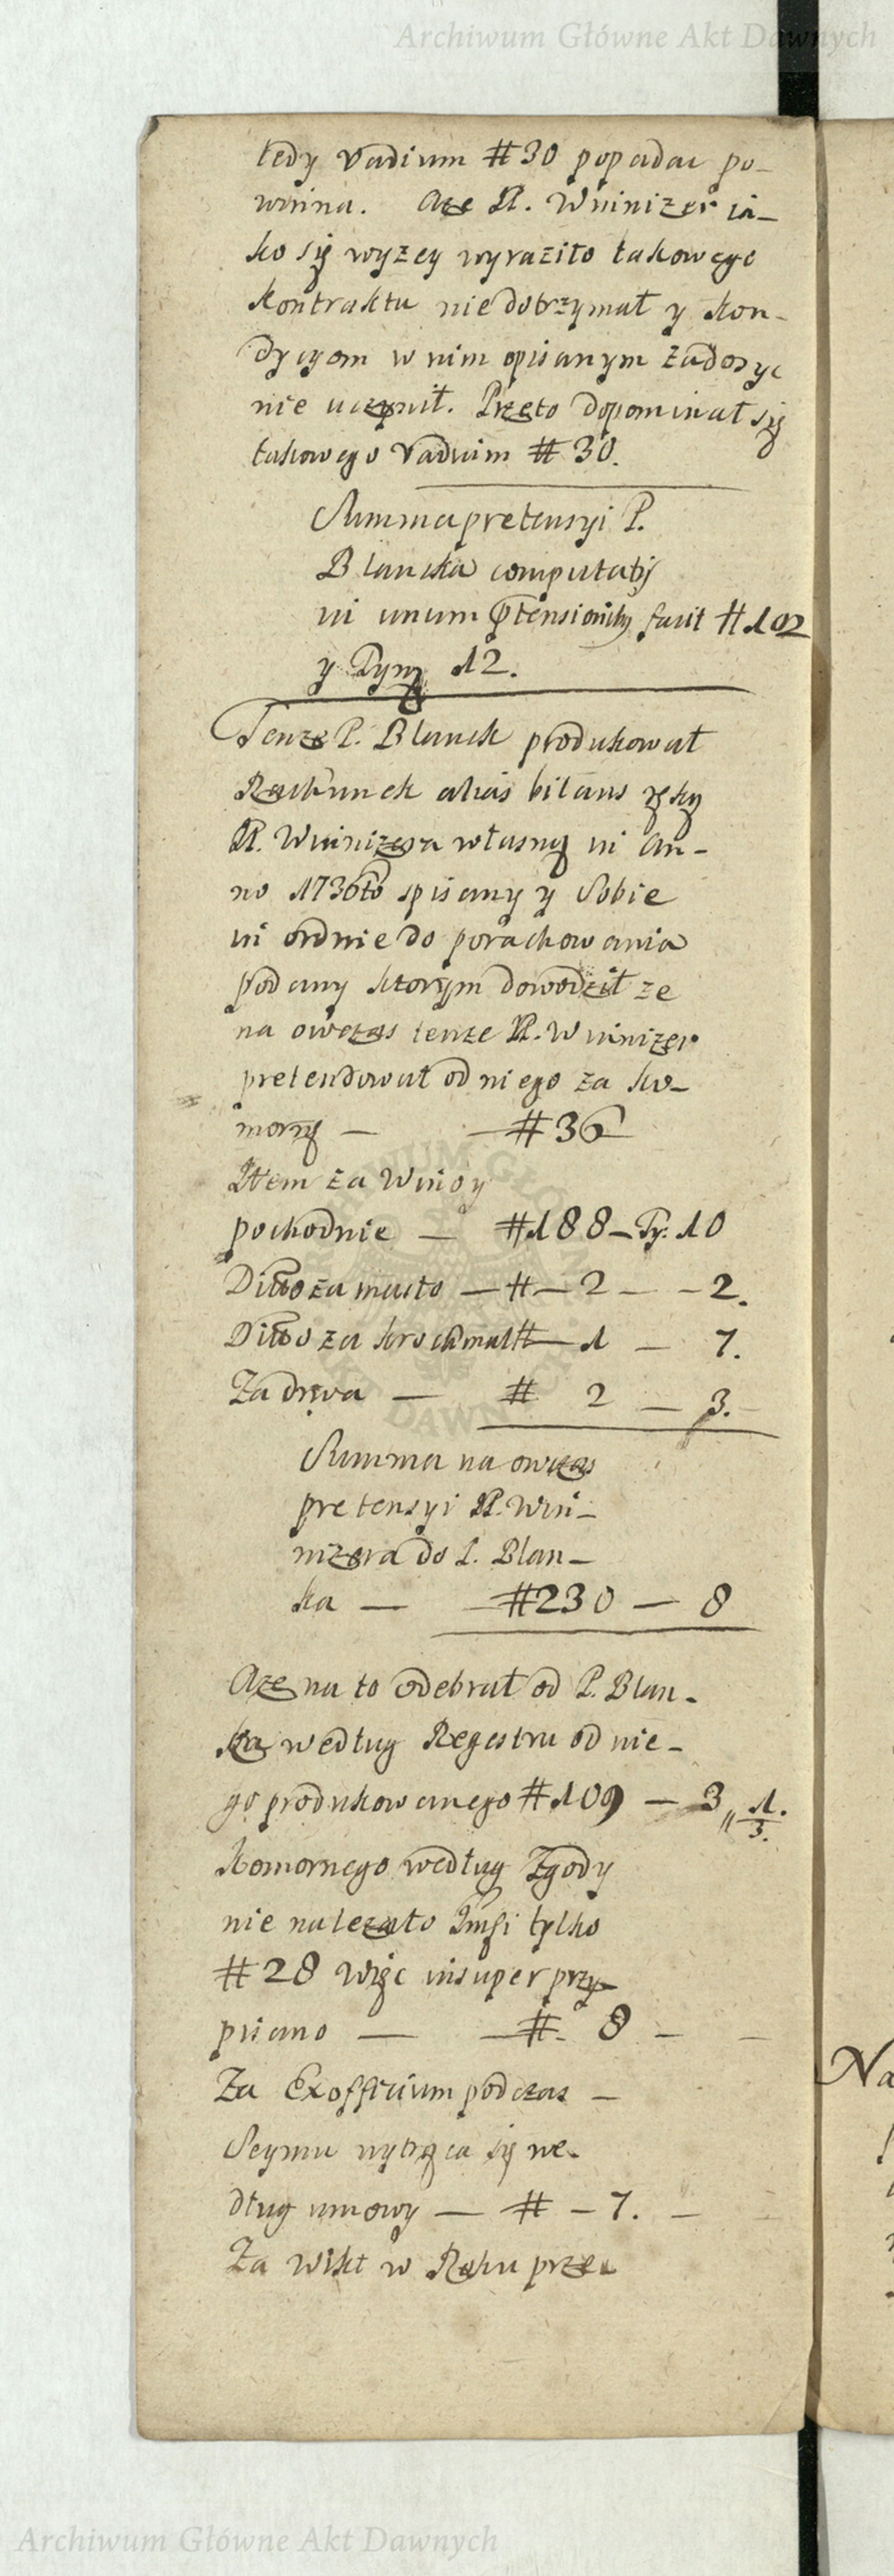 Archiwum Główne Akt Dawnych
tedy Vadium # 30 popadać po-
winna. Aże P. Winnizer ia-
ko się wyzey wyraziło takowego
kontraktu nie dotrzymał y kon-
dycyom w nim opisanym zadosyc
nie uczynił. Przeto dopominał się
takowego Vadium # 30.
Summa pretensyi P.
Blancka computatis
in unum facit # 102
y Tynf 12.
Tenze P. Blanck produkował
Rachunek alias bilans ręką
P. Winnizera własną in An-
no 1736to spisany y Sobie
in ordine do porachowania
podany ktorym dowodził ze
na owczas tenze P. Winnizer
pretendował od niego za ko-
morę — — # 36
Item za Wino y
pochodnie — # 188 — Ty: 10
Ditto za masło — # — 2 — - 2.
Ditto za krochmal # — 1 — 7.
Za drwa — # 2 — 3.
Summa na owczas
pretensyi P. Win-
nizera do P. Blan-
ka — — # 230 — 8
Aże na to odebrał od P. Blan-
ka według Regestru od nie-
go produkowanego # 109 — 3 „ 1/3.
Komornego według Zgody
nie należało tylko
# 28 więc insuper przy-
pisano — — #. 8 — —
Za Exofficium podczas —
Seymu wytrąca się we-
dług umowy — # — 7. —
Za wikt w Roku prze
Na
Archiwum Główne Akt Dawnych